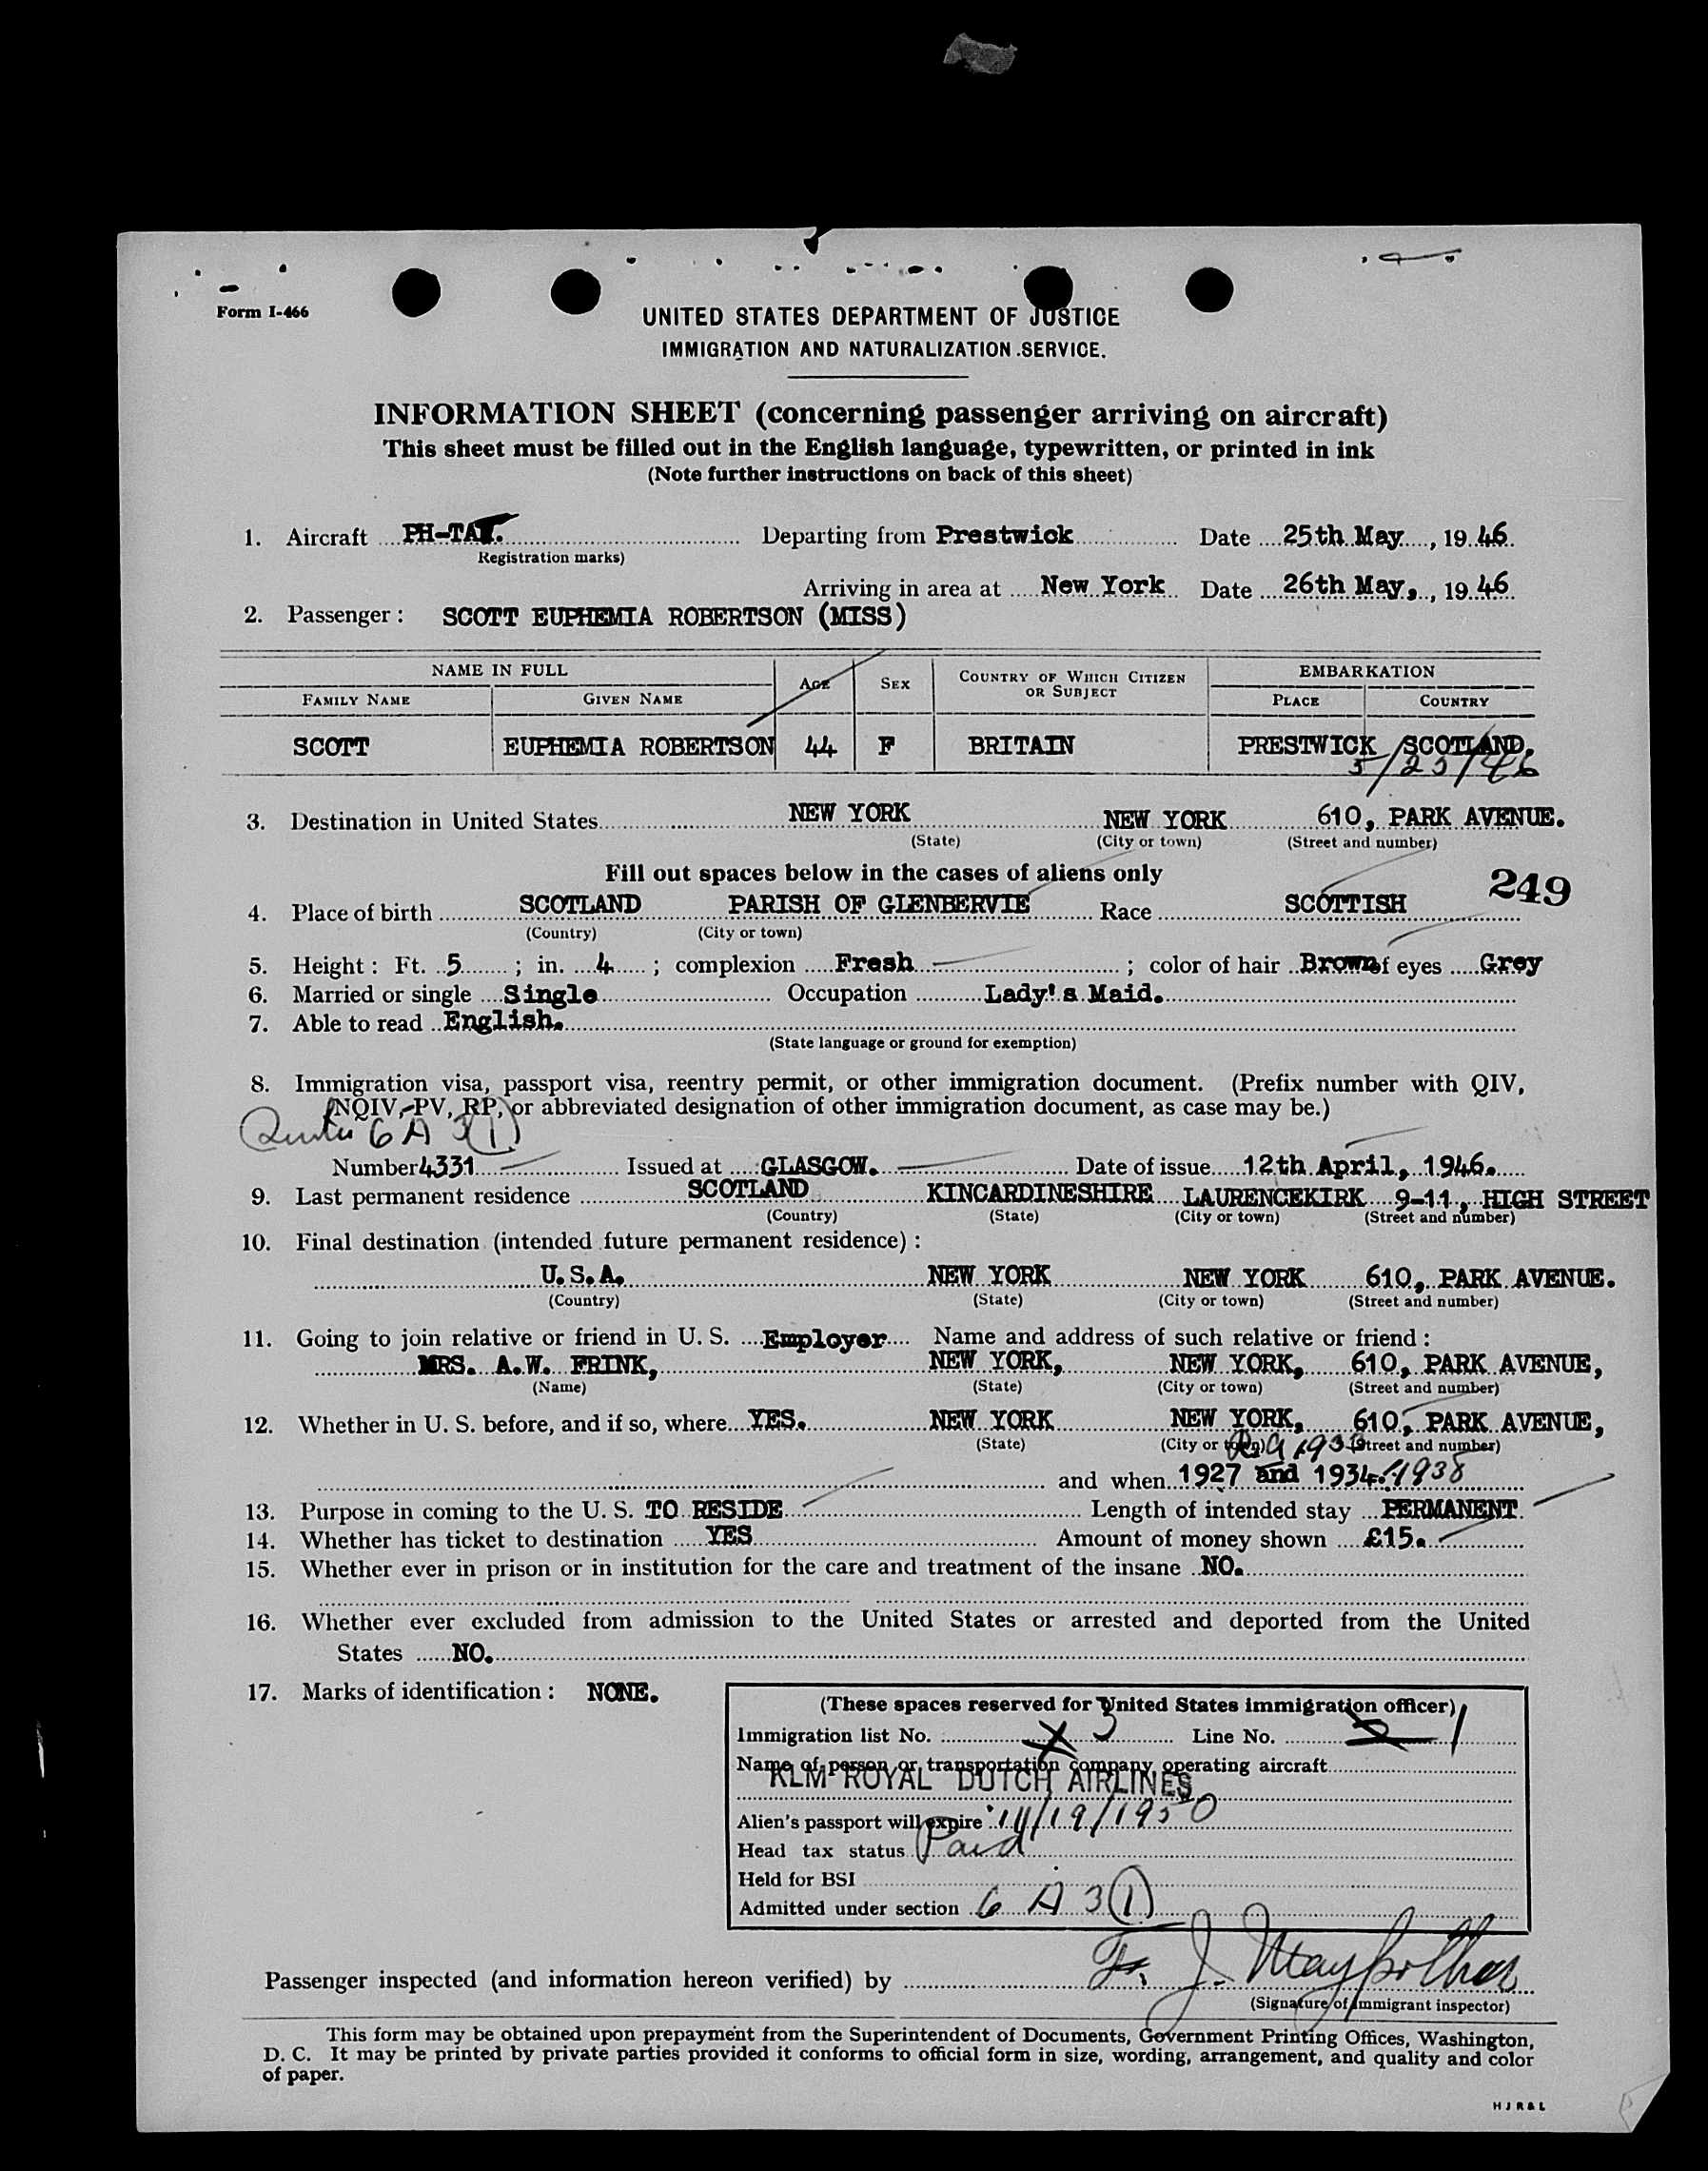 Form I-466
UNITED STATES DEPARTMENT OF JUSTICE
IMMIGRATION AND NATURALIZATION SERVICE.
INFORMATION SHEET (concerning passenger arriving on aircraft)
This sheet must be filled out in the English language, typewritten, or printed in ink
(Note further instructions on back of this sheet)
1. Aircraft Departing from Prestwick Date 25th May, 1946.
Registration marks)
Arriving in area at New York Date 26th May, 1946.
2. Passenger: SCOTT EUPHEMIA ROBERTSON (MISS)
NAME IN FULL AGE SEX COUNTRY OF WHICH CITIZEN OR SUBJECT EMBARKATION
FAMILY NAME GIVEN NAME PLACE COUNTRY
SCOTT EUPHEMIA ROBERTSON 44 F BRITAIN PRESTWICK SCOTLAND.
5/25/46
3. Destination in United States NEW YORK NEW YORK 610, PARK AVENUE.
(State) (City or town) (Street and number)
Fill out spaces below in the cases of aliens only
249
4. Place of birth SCOTLAND PARISH OF GLENBERVIE Race SCOTTISH
(Country) (City or town)
5. Height: Ft. 5; in. 4; complexion Fresh; color of hair Brown of eyes Grey
6. Married or single Single Occupation Lady's Maid.
7. Able to read English.
(State language or ground for exemption)
8. Immigration visa, passport visa, reentry permit, or other immigration document. (Prefix number with QIV,
NQIV, PV, RP, or abbreviated designation of other immigration document, as case may be.)
6 A 3(1)
Number 4331 Issued at GLASGOW. Date of issue 12th April, 1946.
9. Last permanent residence SCOTLAND KINCARDINESHIRE LAURENCEKIRK 9-11, HIGH STREET
(Country) (State) (City or town) (Street and number)
10. Final destination (intended future permanent residence):
U.S.A. NEW YORK NEW YORK 610, PARK AVENUE.
(Country) (State) (City or town) (Street and number)
11. Going to join relative or friend in U. S. Employer Name and address of such relative or friend:
MRS. A.W. FRINK, NEW YORK, NEW YORK, 610, PARK AVENUE,
(Name) (State) (City or town) (Street and number)
12. Whether in U. S. before, and if so, where YES. NEW YORK NEW YORK, 610, PARK AVENUE,
(State) (City or town) (Street and number)
and when 1927 and 1934. 1938
13. Purpose in coming to the U. S. TO RESIDE Length of intended stay PERMANENT.
14. Whether has ticket to destination YES Amount of money shown £15.
15. Whether ever in prison or in institution for the care and treatment of the insane NO.
16. Whether ever excluded from admission to the United States or arrested and deported from the United
States NO.
17. Marks of identification: NONE.
(These spaces reserved for United States immigration officer)
Immigration list No. 3 Line No. 1
Name of person or transportation company operating aircraft
KLM ROYAL DUTCH AIRLINES
Alien's passport will expire 11/19/1950
Head tax status Paid
Held for BSI
Admitted under section 6 A 3(1)
Passenger inspected (and information hereon verified) by
(Signature of immigrant inspector)
This form may be obtained upon prepayment from the Superintendent of Documents, Government Printing Offices, Washington,
D. C. It may be printed by private parties provided it conforms to official form in size, wording, arrangement, and quality and color
of paper.
H J R & L